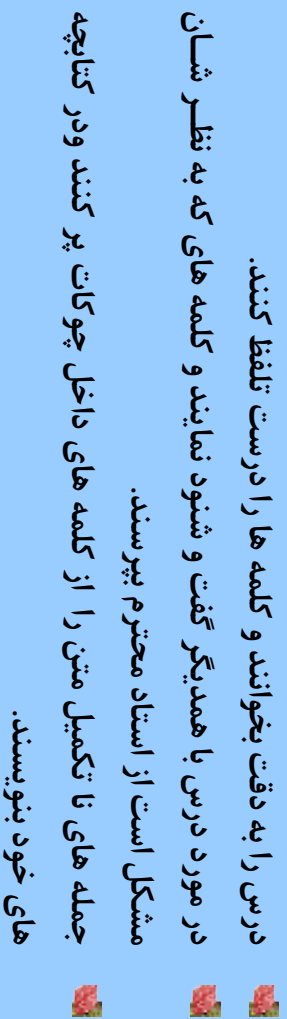 درس را به دقت بخوانند و کلمه ها را درست تلفظ کنند.
در مورد درس با همدیگر گفت و شنود نمایند و کلمه های که به نظـر شـان
مشکل است از استاد محترم بپرسند.
جمله های نا تکمیل متن را از کلمه های داخل چوکات پر کنند ودر کتابچه
های خود بنویسند.